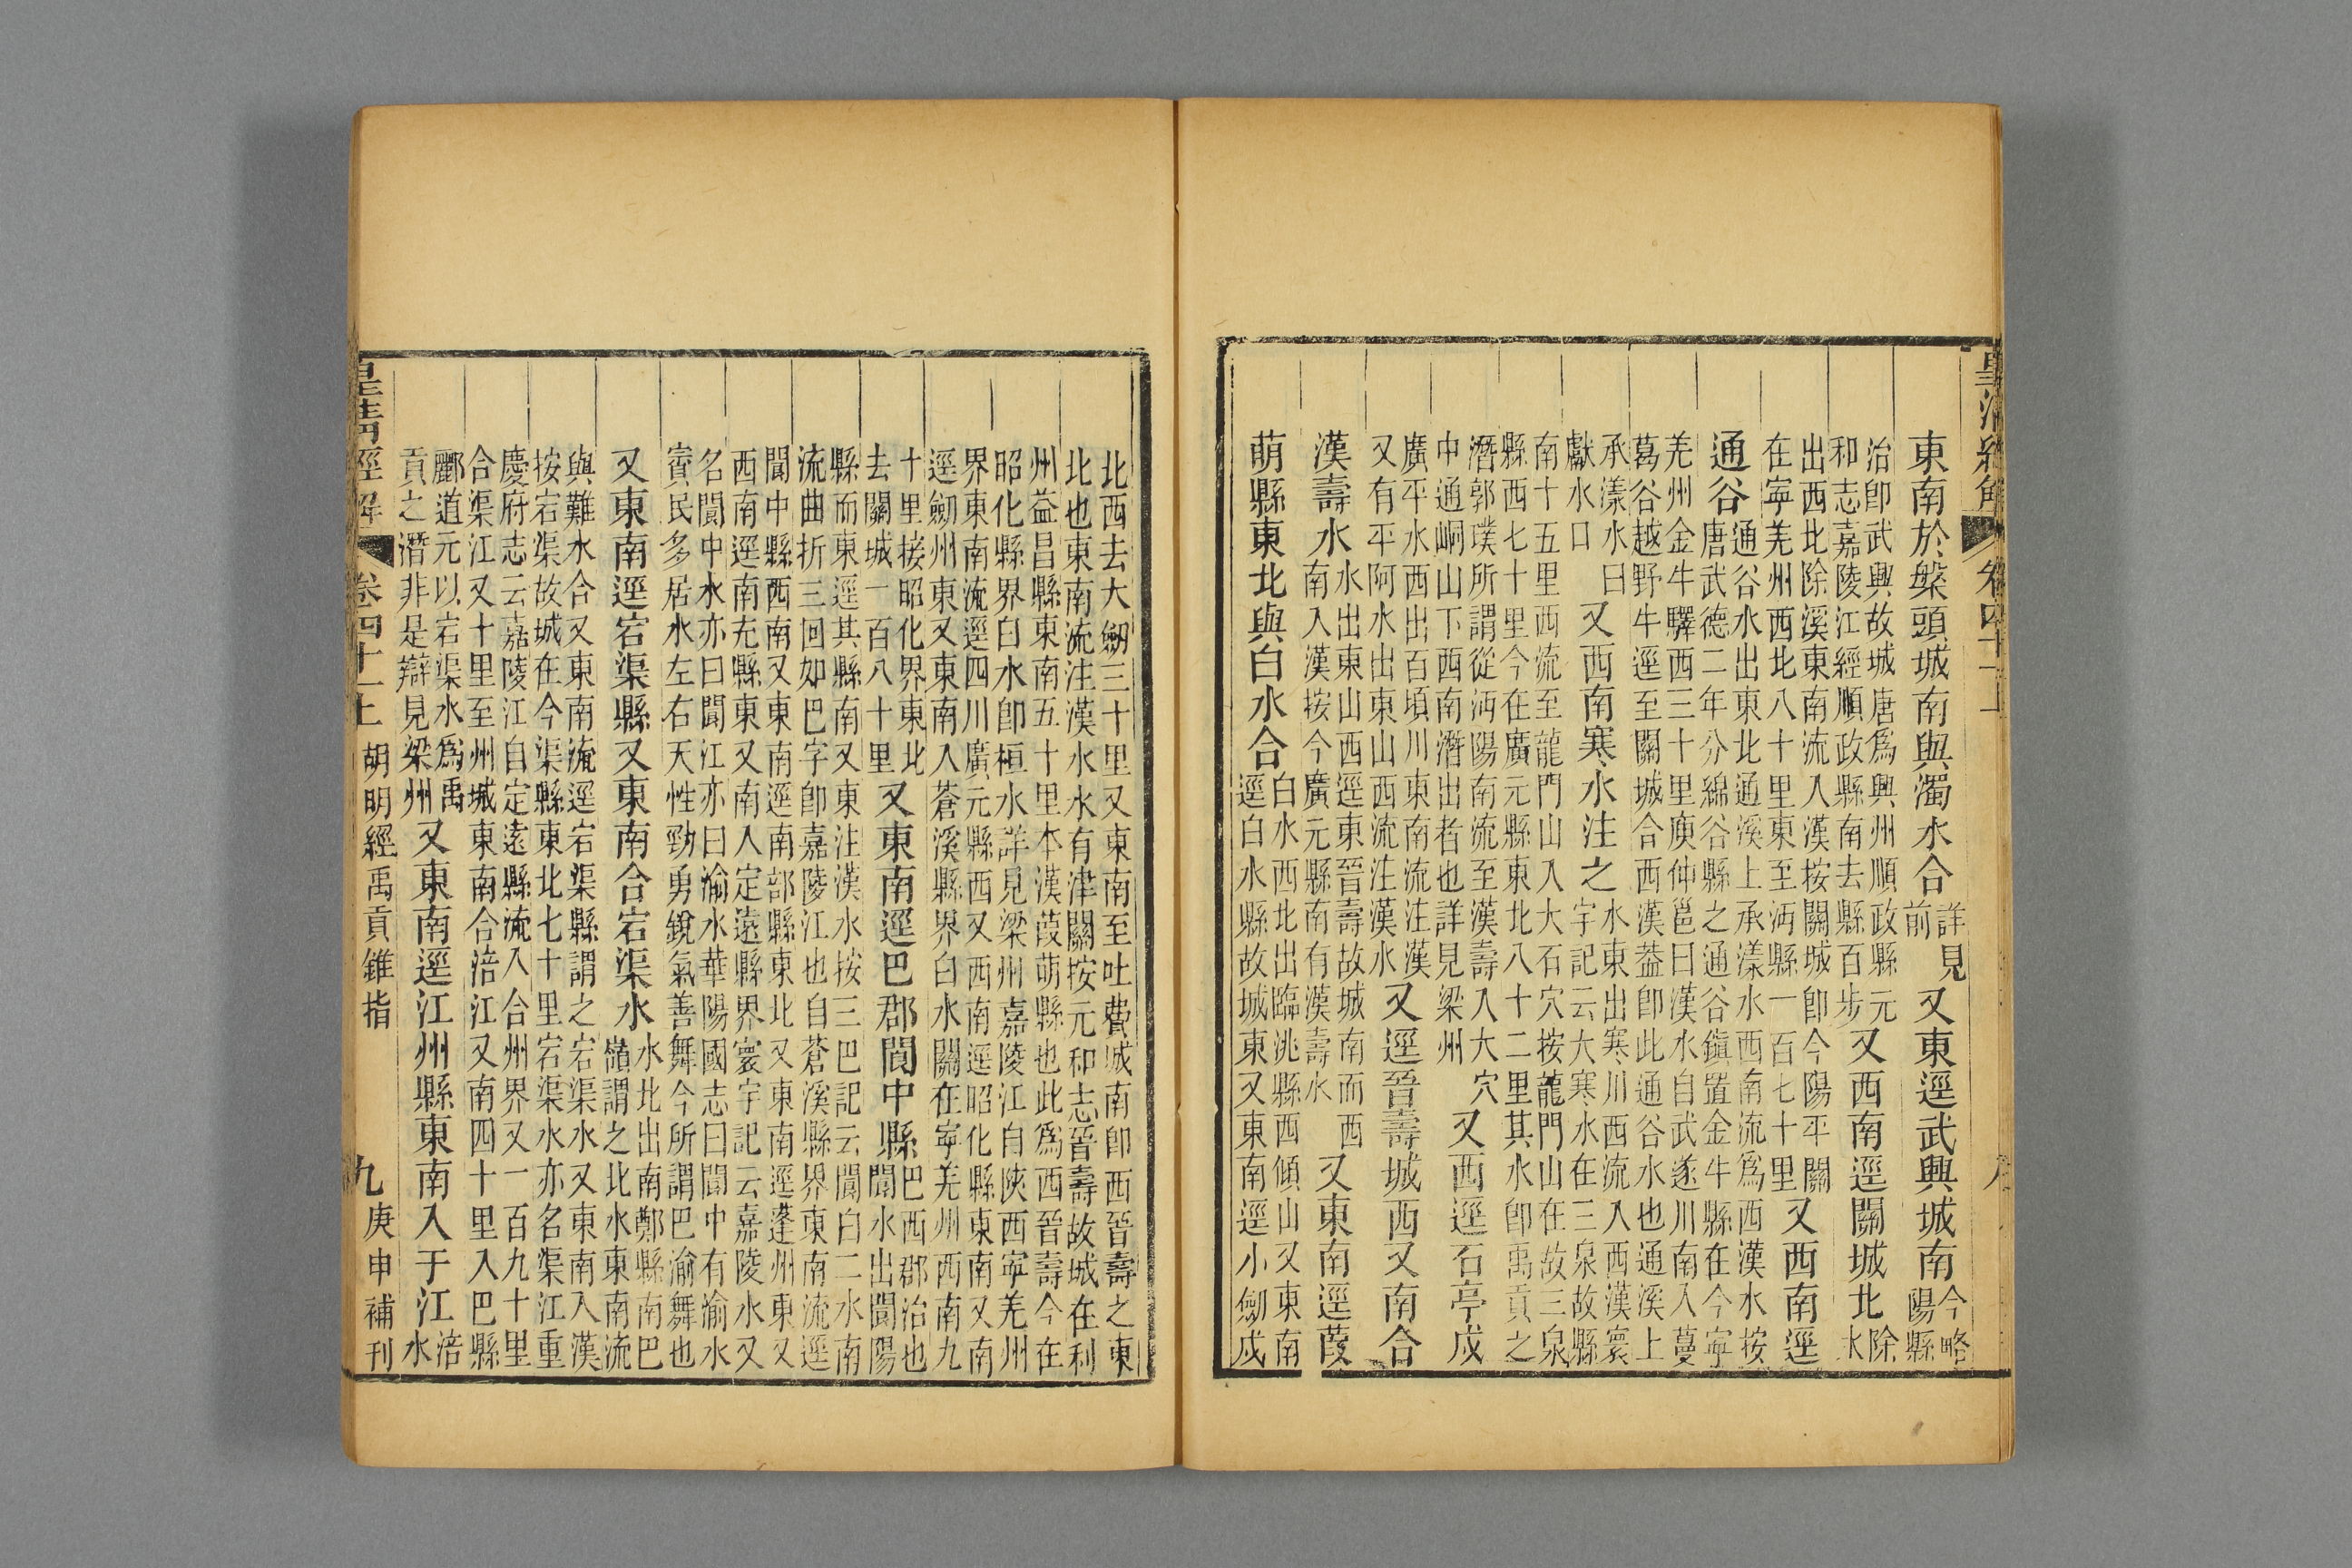 皇清經解 卷四十一上 八
東南於槃頭城南與濁水合詳見前又東逕武興城南今略陽縣
治卽武興故城唐爲興州順政縣元
和志嘉陵江經順政縣南去縣百步又西南逕關城北除水
出西北除溪東南流入漢按關城卽今陽平關
在寧羌州西北八十里東至沔縣一百七十里又西南逕
通谷通谷水出東北通溪上承漾水西南流爲西漢水按
唐武德二年分綿谷縣之通谷鎮置金牛縣在今寧
羌州金牛驛西三十里庾仲邕曰漢水自武遂川南入蔓
葛谷越野牛逕至關城合西漢葢卽此通谷水也通溪上
承漾水曰獻水口又西南寒水注之水東出寒川西流入西漢寰
宇記云大寒水在三泉故縣
南十五里西流至龍門山入大石穴按龍門山在故三泉
縣西七十里今在廣元縣東北八十二里其水卽禹貢之
潛郭璞所謂從沔陽南流至漢壽入大穴
中通峒山下西南潛出者也詳見梁州又西逕石亭戍
廣平水西出百頃川東南流注漢
又有平阿水出東山西流注漢水又逕晉壽城西又南合
漢壽水水出東山西逕東晉壽故城南而西
南入漢按今廣元縣南有漢壽水又東南逕葭
萌縣東北與白水合白水西北出臨洮縣西傾山又東南
逕白水縣故城東又東南逕小劒戍
北西去大劒三十里又東南至吐費城南卽西晉壽之東
北也東南流注漢水水有津關按元和志晉壽故城在利
州益昌縣東南五十里本漢葭萌縣也此爲西晉壽今在
昭化縣界白水卽桓水詳見梁州嘉陵江自陝西寧羌州
界東南流逕四川廣元縣西又西南逕昭化縣東南又南
逕劒州東又東南入蒼溪縣界白水關在寧羌州西南九
十里接昭化界東北
去關城一百八十里又東南逕巴郡閬中縣巴西郡治也
閬水出閬陽
縣而東逕其縣南又東注漢水按三巴記云閬白二水南
流曲折三回如巴字卽嘉陵江也自蒼溪縣界東南流逕
閬中縣西南又東南逕南部縣東北又東南逕蓬州東又
西南逕南充縣東又南入定遠縣界寰宇記云嘉陵水又
名閬中水亦曰閬江亦曰渝水華陽國志曰閬中有渝水
賨民多居水左右天性勁勇銳氣善舞今所謂巴渝舞也
又東南逕宕渠縣又東南合宕渠水水北出南鄭縣南巴
嶺謂之北水東南流
與難水合又東南流逕宕渠縣謂之宕渠水又東南入漢
按宕渠故城在今渠縣東北七十里宕渠水亦名渠江重
慶府志云嘉陵江自定遠縣流入合州界又一百九十里
合渠江又十里至州城東南合涪江又南四十里入巴縣
酈道元以宕渠水爲禹
貢之潛非是辯見梁州又東南逕江州縣東南入于江涪水
皇清經解 卷四十一上 胡明經禹貢錐指 九 庚申補刊